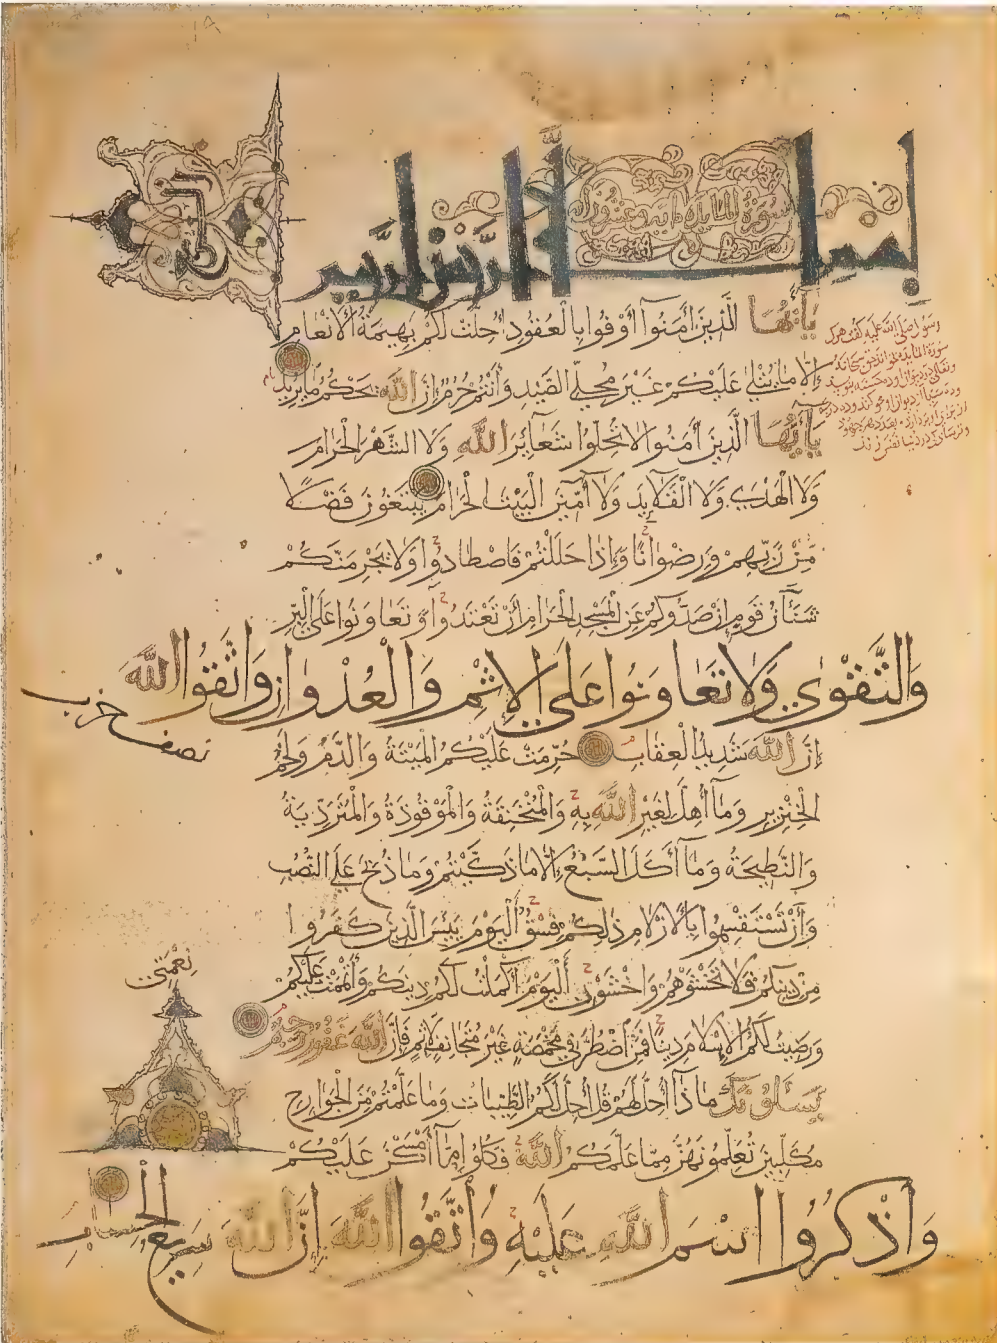 بسم الله الرحمن الرحيم
سورة المائدة
يَا أَيُّهَا الَّذِينَ آمَنُوا أَوْفُوا بِالْعُقُودِ أُحِلَّتْ لَكُمْ بَهِيمَةُ الْأَنْعَامِ
إِلَّا مَا يُتْلَى عَلَيْكُمْ غَيْرَ مُحِلِّي الصَّيْدِ وَأَنْتُمْ حُرُمٌ إِنَّ اللَّهَ يَحْكُمُ مَا يُرِيدُ
يَا أَيُّهَا الَّذِينَ آمَنُوا لَا تُحِلُّوا شَعَائِرَ اللَّهِ وَلَا الشَّهْرَ الْحَرَامَ
وَلَا الْهَدْيَ وَلَا الْقَلَائِدَ وَلَا آمِّينَ الْبَيْتَ الْحَرَامَ يَبْتَغُونَ فَضْلًا
مِنْ رَبِّهِمْ وَرِضْوَانًا وَإِذَا حَلَلْتُمْ فَاصْطَادُوا وَلَا يَجْرِمَنَّكُمْ
شَنَآنُ قَوْمٍ أَنْ صَدُّوكُمْ عَنِ الْمَسْجِدِ الْحَرَامِ أَنْ تَعْتَدُوا وَتَعَاوَنُوا عَلَى الْبِرِّ
وَالتَّقْوَى وَلَا تَعَاوَنُوا عَلَى الْإِثْمِ وَالْعُدْوَانِ وَاتَّقُوا اللَّهَ
نصف حزب
إِنَّ اللَّهَ شَدِيدُ الْعِقَابِ حُرِّمَتْ عَلَيْكُمُ الْمَيْتَةُ وَالدَّمُ وَلَحْمُ
الْخِنْزِيرِ وَمَا أُهِلَّ لِغَيْرِ اللَّهِ بِهِ وَالْمُنْخَنِقَةُ وَالْمَوْقُوذَةُ وَالْمُتَرَدِّيَةُ
وَالنَّطِيحَةُ وَمَا أَكَلَ السَّبُعُ إِلَّا مَا ذَكَّيْتُمْ وَمَا ذُبِحَ عَلَى النُّصُبِ
وَأَنْ تَسْتَقْسِمُوا بِالْأَزْلَامِ ذَلِكُمْ فِسْقٌ الْيَوْمَ يَئِسَ الَّذِينَ كَفَرُوا
مِنْ دِينِكُمْ فَلَا تَخْشَوْهُمْ وَاخْشَوْنِ الْيَوْمَ أَكْمَلْتُ لَكُمْ دِينَكُمْ وَأَتْمَمْتُ عَلَيْكُمْ
نِعْمَتِي
وَرَضِيتُ لَكُمُ الْإِسْلَامَ دِينًا فَمَنِ اضْطُرَّ فِي مَخْمَصَةٍ غَيْرَ مُتَجَانِفٍ لِإِثْمٍ فَإِنَّ اللَّهَ غَفُورٌ رَحِيمٌ
يَسْأَلُونَكَ مَاذَا أُحِلَّ لَهُمْ قُلْ أُحِلَّ لَكُمُ الطَّيِّبَاتُ وَمَا عَلَّمْتُمْ مِنَ الْجَوَارِحِ
مُكَلِّبِينَ تُعَلِّمُونَهُنَّ مِمَّا عَلَّمَكُمُ اللَّهُ فَكُلُوا مِمَّا أَمْسَكْنَ عَلَيْكُمْ
وَاذْكُرُوا اسْمَ اللَّهِ عَلَيْهِ وَاتَّقُوا اللَّهَ إِنَّ اللَّهَ سَرِيعُ الْحِسَابِ